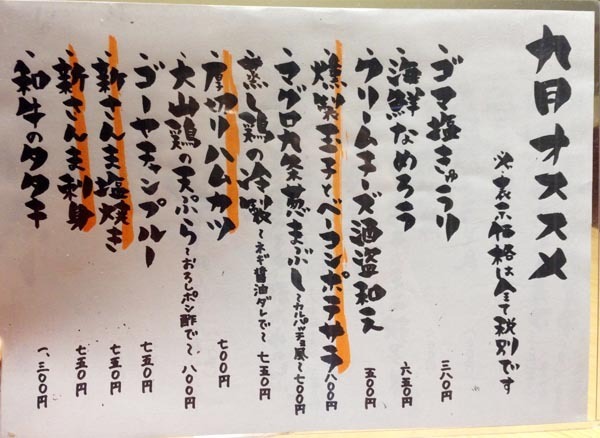 九月オススメ
※表示価格は全て税別です
・ゴマ塩きゅうり 三八〇円
・海鮮なめろう 六五〇円
・クリームチーズ酒盗和え 五〇〇円
・燻製玉子とベーコンポテサラ 八〇〇円
・マグロ九条葱まぶし〜カルパッチョ風〜 七〇〇円
・蒸し鶏の冷製〜ネギ醤油ダレで〜 七五〇円
・厚切りハムカツ 七〇〇円
・大山鶏の天ぷら〜おろしポン酢で〜 八〇〇円
・ゴーヤチャンプルー 七五〇円
・新さんま塩焼き 七五〇円
・新さんま刺身 七五〇円
・和牛のタタキ 一、三〇〇円